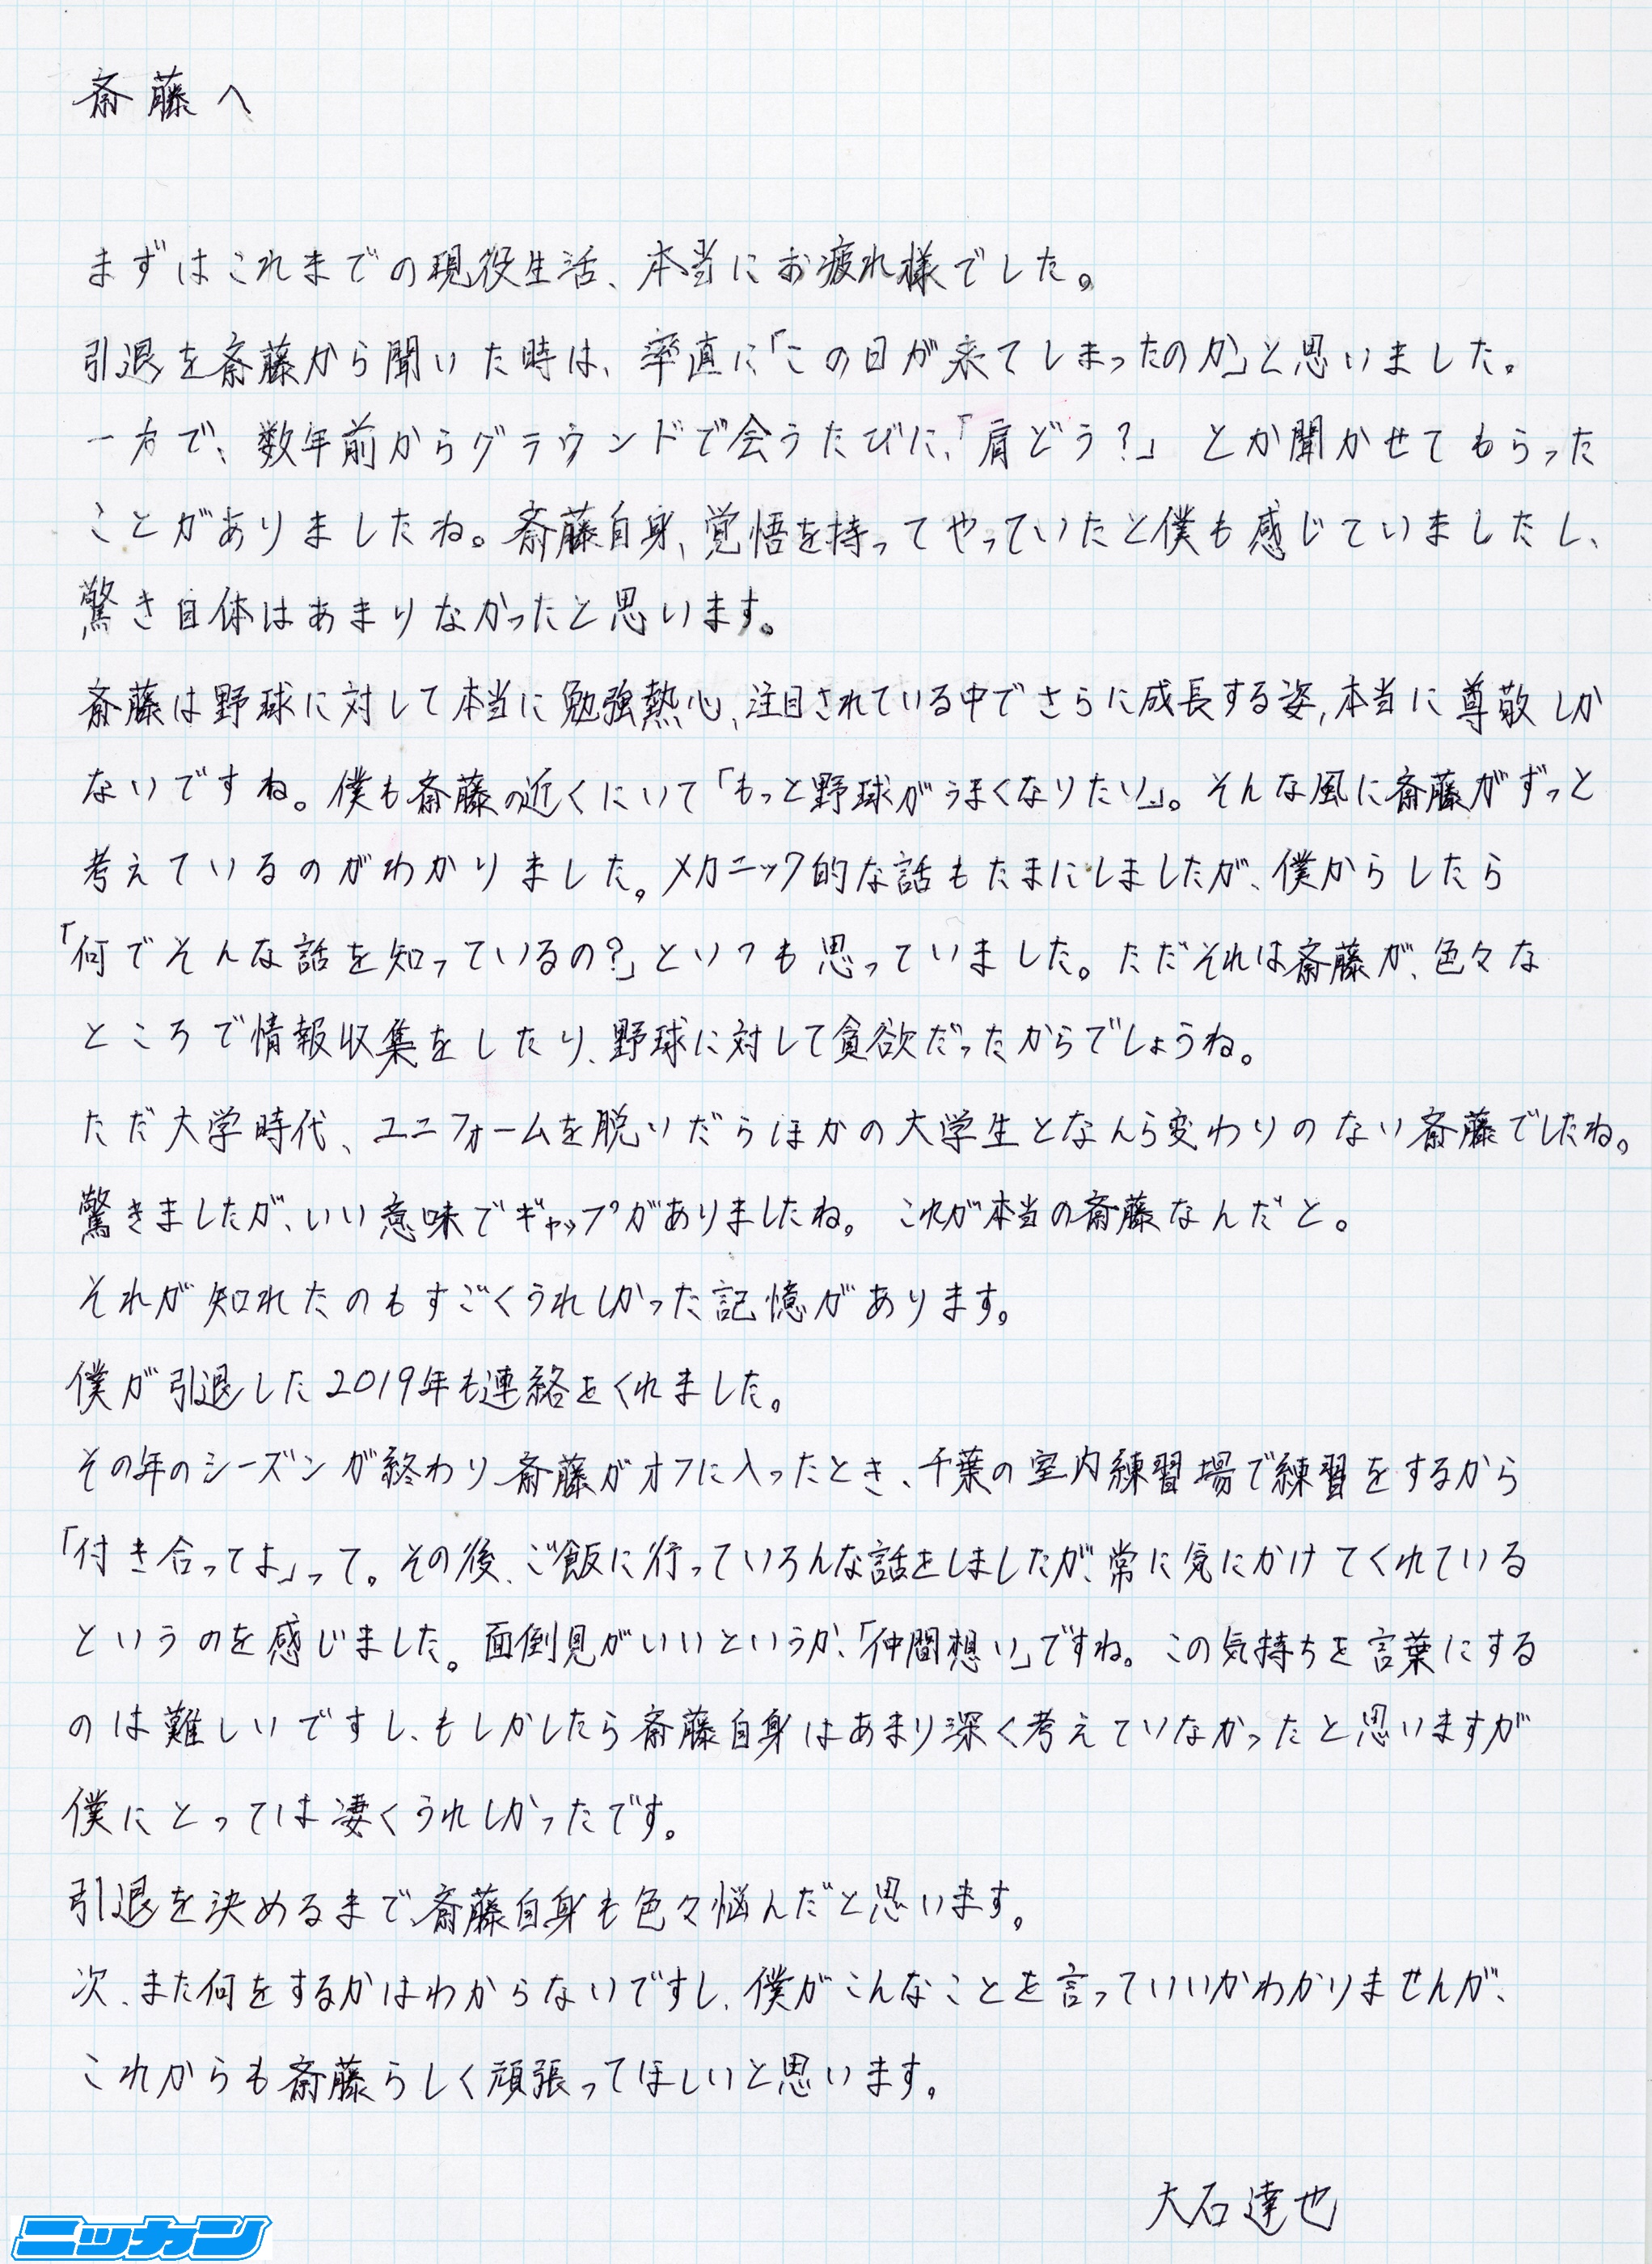 斎藤へ
まずはこれまでの現役生活、本当にお疲れ様でした。
引退を斎藤から聞いた時は、率直に「この日が来てしまったのか」と思いました。
一方で、数年前からグラウンドで会うたびに、「肩どう？」とか聞かせてもらった
ことがありましたね。斎藤自身、覚悟を持ってやっていたと僕も感じていましたし、
驚き自体はあまりなかったと思います。
斎藤は野球に対して本当に勉強熱心、注目されている中でさらに成長する姿、本当に尊敬しか
ないですね。僕も斎藤の近くにいて「もっと野球がうまくなりたい」。そんな風に斎藤がずっと
考えているのがわかりました。メカニック的な話もたまにしましたが、僕からしたら
「何でそんな話を知っているの?」といつも思っていました。ただそれは斎藤が、色々な
ところで情報収集をしたり、野球に対して貪欲だったからでしょうね。
ただ大学時代、ユニフォームを脱いだらほかの大学生となんら変わりのない斎藤でしたね。
驚きましたが、いい意味でギャップがありましたね。これが本当の斎藤なんだと。
それが知れたのもすごくうれしかった記憶があります。
僕が引退した2019年も連絡をくれました。
その年のシーズンが終わり、斎藤がオフに入ったとき、千葉の室内練習場で練習をするから
「付き合ってよ」って。その後、ご飯に行っていろんな話をしましたが、常に気にかけてくれている
というのを感じました。面倒見がいいというか、「仲間想い」ですね。この気持ちを言葉にする
のは難しいですし、もしかしたら斎藤自身はあまり深く考えていなかったと思いますが
僕にとっては凄くうれしかったです。
引退を決めるまで、斎藤自身も色々悩んだと思います。
次、また何をするかはわからないですし、僕がこんなことを言っていいかわかりませんが、
これからも斎藤らしく頑張ってほしいと思います。
大石達也
ニッカン